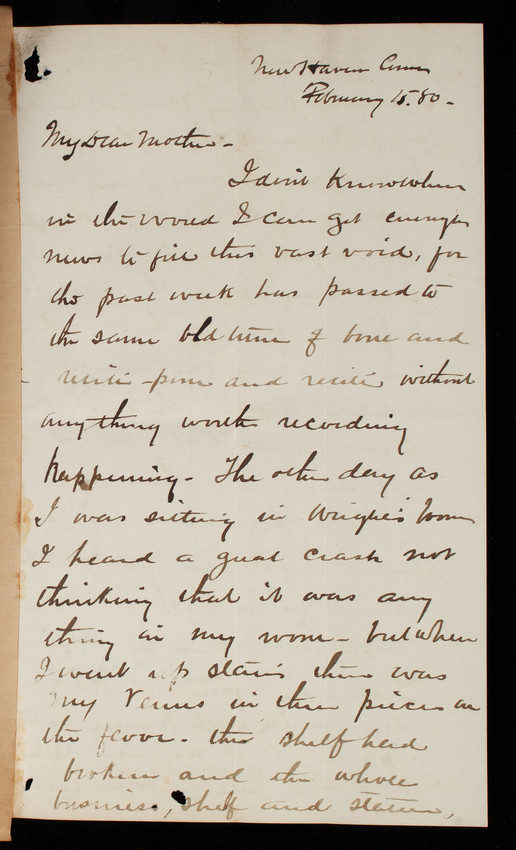 New Haven Conn
February 15. 80.
My Dear Mother-
I don't know where
in the world I can get enough
news to fill this vast void, for
the past week has passed to
the same old tune of bone and
recite - pone and recite without
anything worth recording
happening. The other day as
I was sitting in Wright's room
I heard a great crash not
thinking that it was any
thing in my room - but when
I went up stairs there was
my Venus in three pieces on
the floor - the shelf had
broken and the whole
business, shelf and statue,